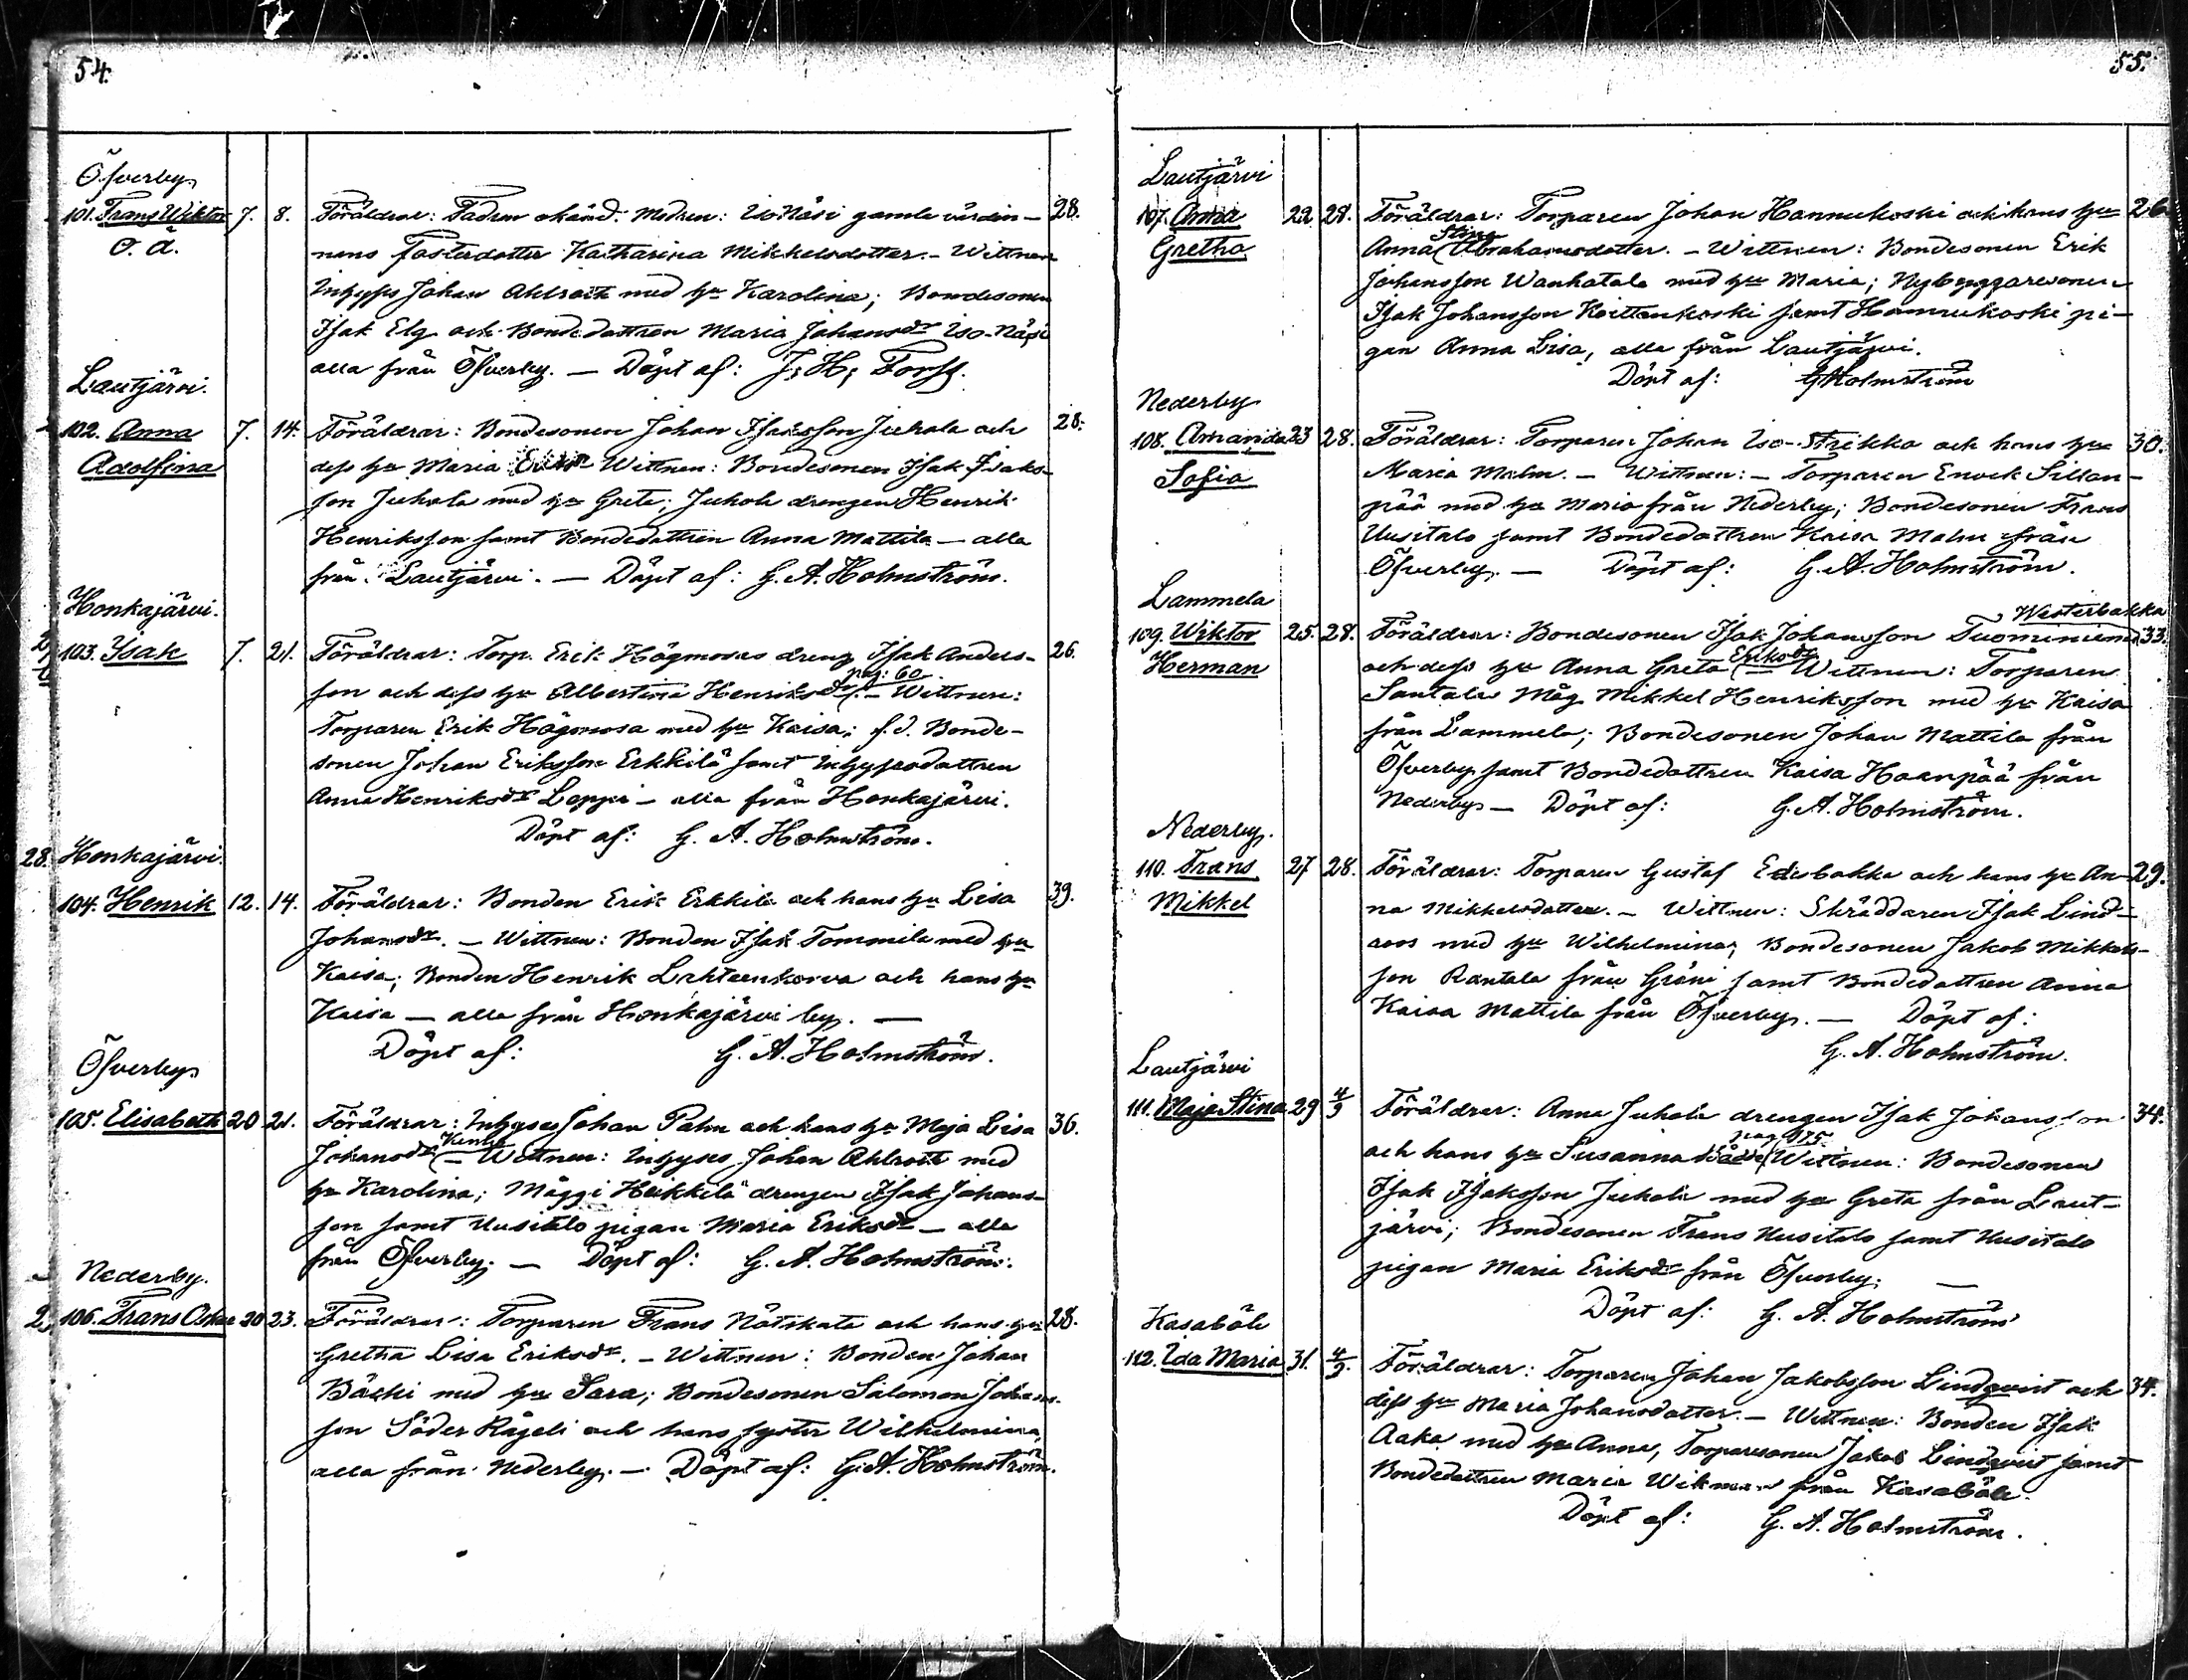 54.
Öfverby
101. Frans Wiktor 7. 8. Föräldrar: Fadren okänd. Modren: Iso Näsi gamle värdin- 28.
O. ä. nans fosterdotter Katharina Mikkelsdotter. - Wittnen
Inhyses Johan Ahlroth med hu Karolina; Bondesonen
Isak Elg och Bondedottren Maria Johansdr Iso-Näsi
alla från Öfverby. — Döpt af: J. H. Forss.
Lautjärvi.
102. Anna 7. 14. Föräldrar: Bondesonen Johan Isaksson Juhola och 28.
Adolfina dess hu Maria Wittnen: Bondesonen Isak Isaks-
son Juhola med hu Greta; Juhola drengen Henrik
Henriksson samt Bondedottren Anna Mattila — alla
från Lautjärvi. — Döpt af: G. A. Holmström.
Honkajärvi.
103. Isak 7. 21. Föräldrar: Torp. Erik Högmosas dreng Isak Anders- 26.
pag: 60.
son och dess hu Albertina Henriksdr. - Wittnen:
Torparen Erik Högmosa med hu Kaisa; f.d. Bonde-
sonen Johan Eriksson Erkkilä samt Inhysesdottren
Anna Henriksdr Leppi - alla från Honkajärvi.
Döpt af: G. A. Holmström.
28. Honkajärvi.
104. Henrik 12. 14. Föräldrar: Bonden Erik Erkkilä och hans hu Lisa 39.
Johansdr. - Wittnen: Bonden Isak Tommila med hu
Kaisa; Bonden Henrik Lahteenkorva och hans hu
Kaisa — alla från Honkajärvi by. —
Döpt af: G. A. Holmström.
Öfverby
105. Elisabeth 20 21. Föräldrar: Inhyses Johan Palm och hans hu Maja Lisa 36.
Johansdr - Wittnen: Inhyses Johan Ahlroth med
hu Karolina; Mäggi Heikkilä drengen Isak Johans-
son samt Uusitalo pigan Maria Eriksdr - alla
från Öfverby. — Döpt af: G. A. Holmström.
Nederby.
106. Frans Oskar 20 23. Föräldrar: Torparen Frans Nätikata och hans hu 28.
Gretha Lisa Eriksdr. - Wittnen: Bonden Johan
Bäcki med hu Sara; Bondesonen Salomon Johans-
son Söder Rågeli och hans syster Wilhelmina,
alla från Nederby. — Döpt af: G. A. Holmström.
55.
Lautjärvi
107. Anna 22 28. Föräldrar: Torparen Johan Hannukoski och hans hu 26
Stina
Gretha Anna (Abrahamsdotter. - Wittnen: Bondesonen Erik
Johansson Wanhatalo med hu Maria; Nybyggaresonen
Isak Johansson Koittenkoski samt Hannukoski pi-
gan Anna Lisa, alla från Lautjärvi.
Döpt af: G A Holmström
Nederby
108. Amanda 23 28. Föräldrar: Torparen Johan Iso-Strikka och hans hu 30.
Sofia Maria Malm. - Wittnen: - Torparen Enock Sillan-
pää med hu Maria från Nederby; Bondesonen Frans
Uusitalo samt Bondedottren Kaisa Malm från
Öfverby. — Döpt af: G. A. Holmström.
Lammela
Westerbakka
109. Wiktor 25. 28. Föräldrar: Bondesonen Isak Johansson Tuominiemi 33.
Eriksdr
Herman och dess hu Anna Greta - Wittnen: Torparen
Santala Måg Mikkel Henriksson med hu Kaisa
från Lammela; Bondesonen Johan Mattila från
Öfverby samt Bondedottren Kaisa Haanpää från
Nederby - Döpt af: G. A. Holmström.
Nederby.
110. Frans 27 28. Föräldrar: Torparen Gustaf Edesbakka och hans hu An- 29.
Mikkel na Mikkelsdotter. - Wittnen: Skräddaren Isak Lind-
roos med hu Wilhelmina; Bondesonen Jakob Mikkels-
son Rantala från Gröni samt Bondedottren Anna
Kaisa Mattila från Öfverby. — Döpt af:
G. A. Holmström.
Lautjärvi
111. Maja Stina 29 4/9 Föräldrar: Anna Juhola drengen Isak Johansson 34.
pag 175.
och hans hu Susanna Wittnen: Bondesonen
Isak Isaksson Juhola med hu Greta från Laut-
järvi; Bondesonen Frans Uusitalo samt Uusitalo
pigan Maria Eriksdr från Öfverby. —
Döpt af: G. A. Holmström
Kasaböle
112. Ida Maria 31. 4/9. Föräldrar: Torparen Johan Jakobsson Lindqvist och 34.
dess hu Maria Johansdotter. - Wittnen: Bonden Isak
Aaka med hu Anna, Torparesonen Jakob Lindqvist samt
Bondedottren Maria Wikman från Kasaböle.
Döpt af: G. A. Holmström.